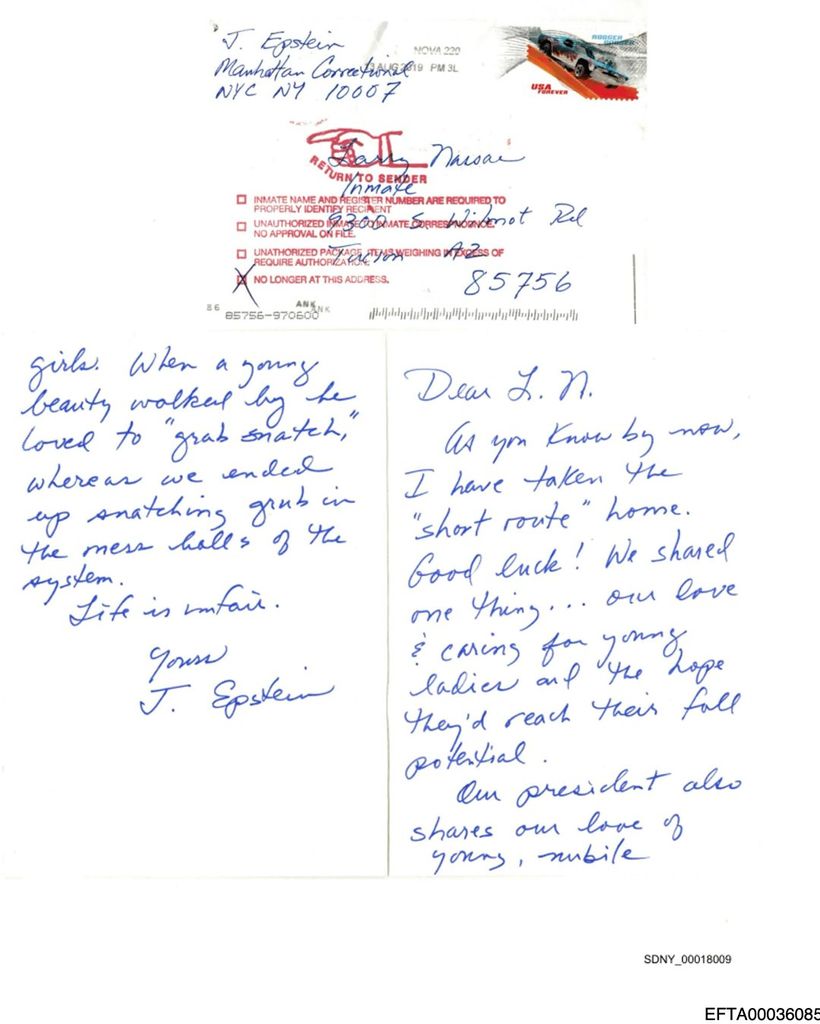 J. Epstein
Manhattan Correctional
NYC NY 10007
NOVA 220
13 AUG 2019 PM 3L
RODGER DODGER
USA
FOREVER
Larry Nassar
Inmate
9300 S. Wilmot Rd
Tucson AZ
85756
RETURN TO SENDER
INMATE NAME AND REGISTER NUMBER ARE REQUIRED TO
PROPERLY IDENTIFY RECIPIENT
UNAUTHORIZED INMATE TO INMATE CORRESPONDENCE.
NO APPROVAL ON FILE.
UNATHORIZED PACKAGE. ITEMS WEIGHING IN EXCESS OF
REQUIRE AUTHORIZATION.
X NO LONGER AT THIS ADDRESS.
86
ANK
ANK
85756-970600
Dear L. N.
As you know by now,
I have taken the
"short route" home.
Good luck! We shared
one thing... our love
& caring for young
ladies and the hope
they'd reach their full
potential.
Our president also
shares our love of
young, nubile
girls. When a young
beauty walked by he
loved to "grab snatch,"
whereas we ended
up snatching grub in
the mess halls of the
system.
Life is unfair.
Yours
J. Epstein
SDNY_00018009
EFTA00036085